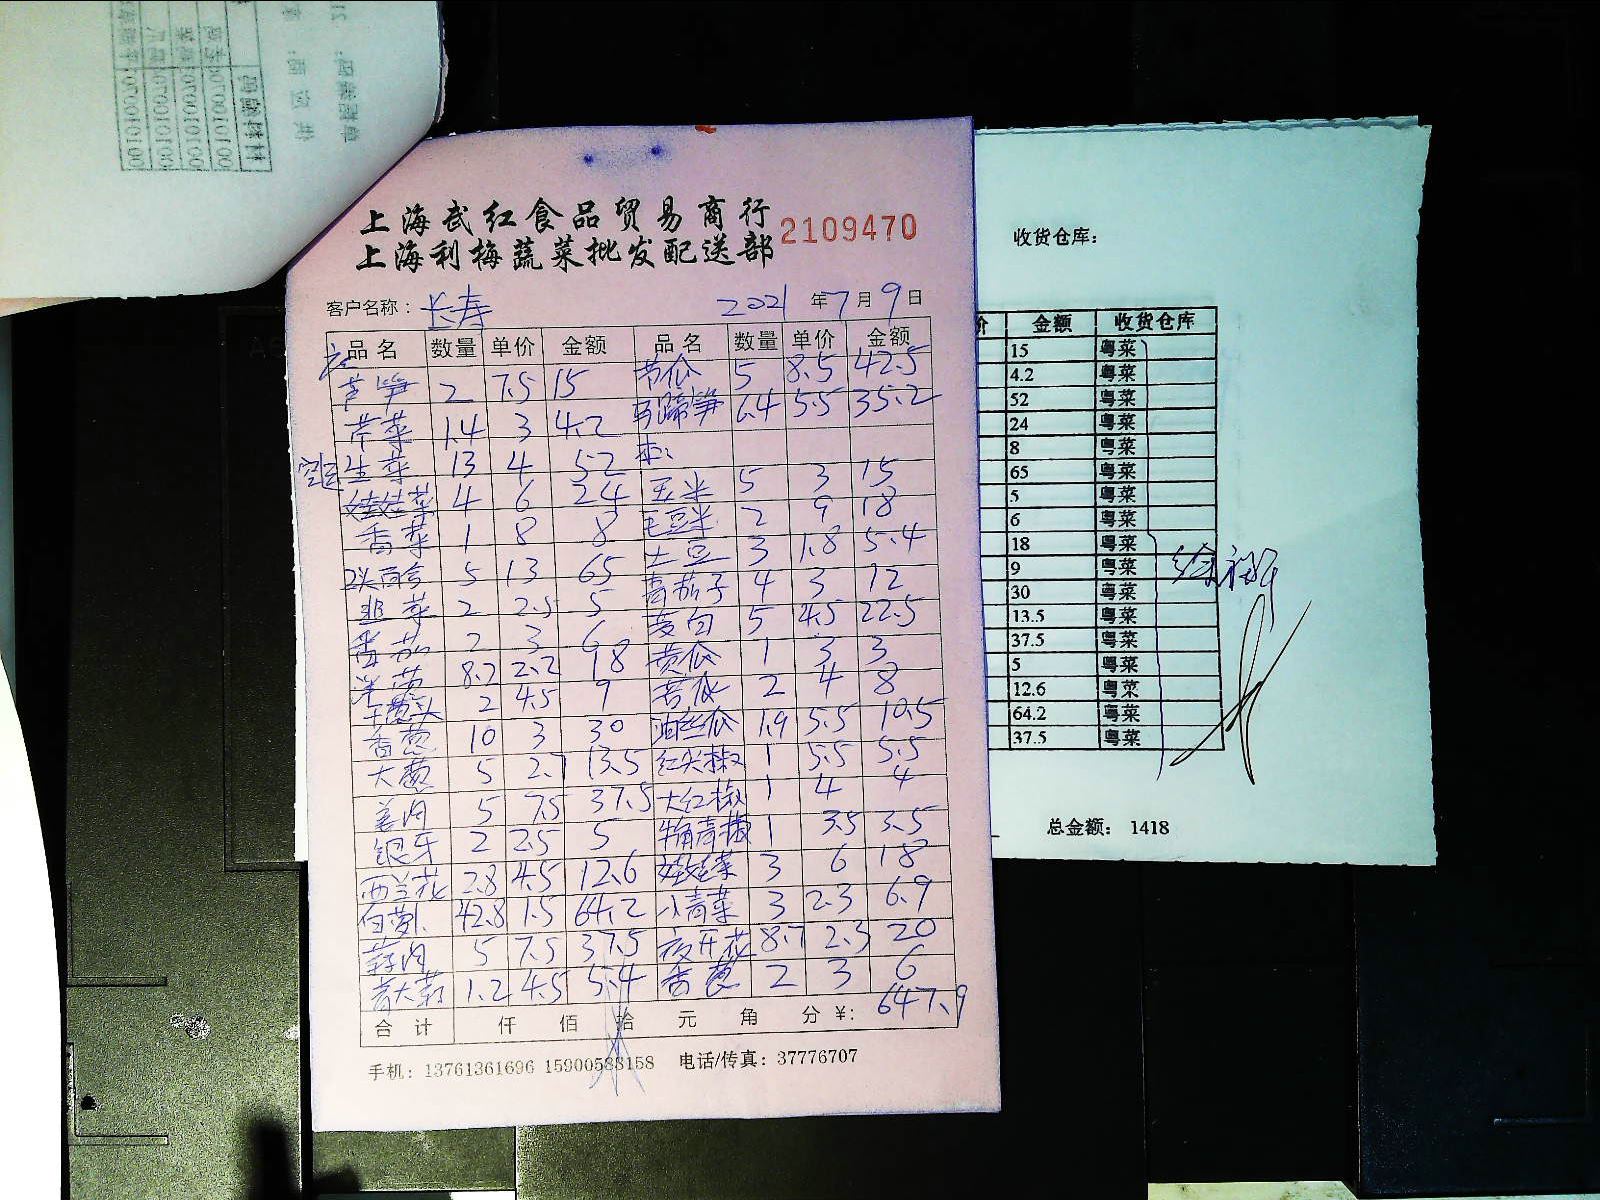 上海武红食品贸易商行
上海利梅蔬菜批发配送部
2109470
客户名称：长寿 2021年7月9日
品名 数量 单价 金额 品名 数量 单价 金额
芦笋 2 7.5 15 节瓜 5 8.5 42.5
芹菜 1.4 3 4.2 马蹄笋 6.4 5.5 35.2
生菜 13 4 52
娃娃菜 4 6 24 玉米 5 3 15
香菜 1 8 8 毛豆米 2 9 18
2头百合 5 13 65 土豆 3 1.8 5.4
韭菜 2 2.5 5 青茄子 4 3 12
番茄 2 3 6 茭白 5 4.5 22.5
洋葱 8.2 2.2 18 黄瓜 1 3 3
干葱头 2 4.5 9 苦瓜 2 4 8
香葱 10 3 30 油丝瓜 1.9 5.5 10.5
大葱 5 2.7 13.5 红尖椒 1 5.5 5.5
姜肉 5 7.5 37.5 大红椒 1 4 4
银牙 2 2.5 5 牛角青椒 1 3.5 3.5
西兰花 2.8 4.5 12.6 娃娃菜 3 6 18
白萝卜 42.8 1.5 64.2 小青菜 3 2.3 6.9
蒜肉 5 7.5 37.5 夜开花 8.7 2.3 20
1.2 4.5 5.4 香葱 2 3 6
合计 仟 佰 拾 元 角 分 ¥: 647.9
手机：13761361696 15900583158 电话/传真：37776707
收货仓库：
价 金额 收货仓库
15 粤菜
4.2 粤菜
52 粤菜
24 粤菜
8 粤菜
65 粤菜
5 粤菜
6 粤菜
18 粤菜
9 粤菜
30 粤菜
13.5 粤菜
37.5 粤菜
5 粤菜
12.6 粤菜
64.2 粤菜
37.5 粤菜
总金额： 1418